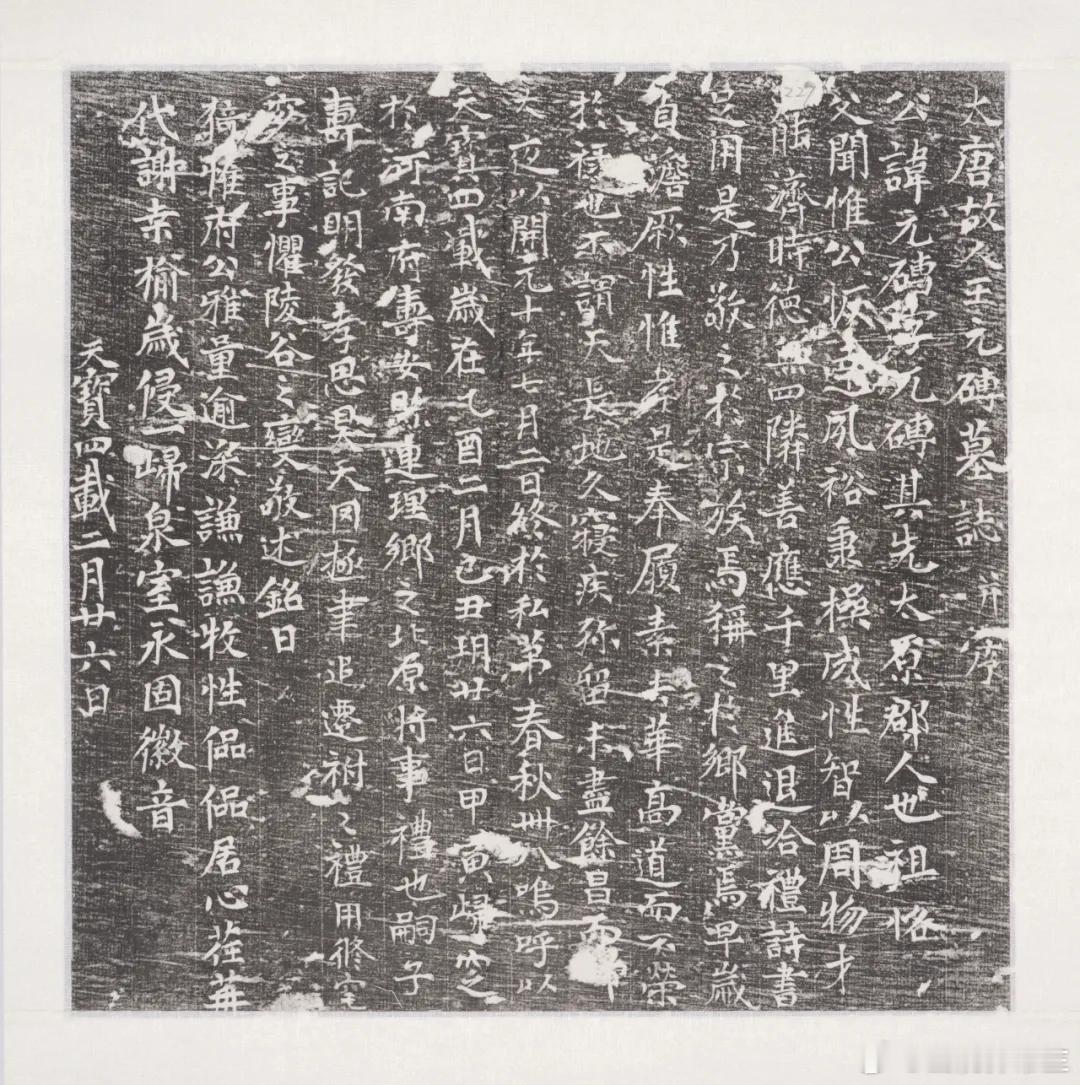 大唐故人王元磚墓誌并序
公諱元磚字元磚其先太原郡人也祖恪
父聞惟公恢夙裕秉操咸性智以周物才
陆濟時德無四隣善應千里進退合禮詩書
是用是乃敬之於宗族焉稱之於鄉黨焉早歲
自澹厥性惟孝是奉履素去華高道而不榮
於祿也不謂天長地久寢疾弥留未盡餘昌
大夜以開元十年七月二日終於私第春秋卌八嗚呼以
天寶四載歲在乙酉二月己丑玥廿六日甲寅歸窆
於河南府壽安縣連理鄉之北原將事禮也嗣子
壽記明發孝思昊天罔極聿追遷祔之禮用脩窀
穸之事懼陵谷之變敬述銘曰
猗惟府公雅量逾深謙謙牧性偘偘居心荏苒
代謝桒榆歲侵一歸泉室永固徽音
天寶四載二月廿六日
227